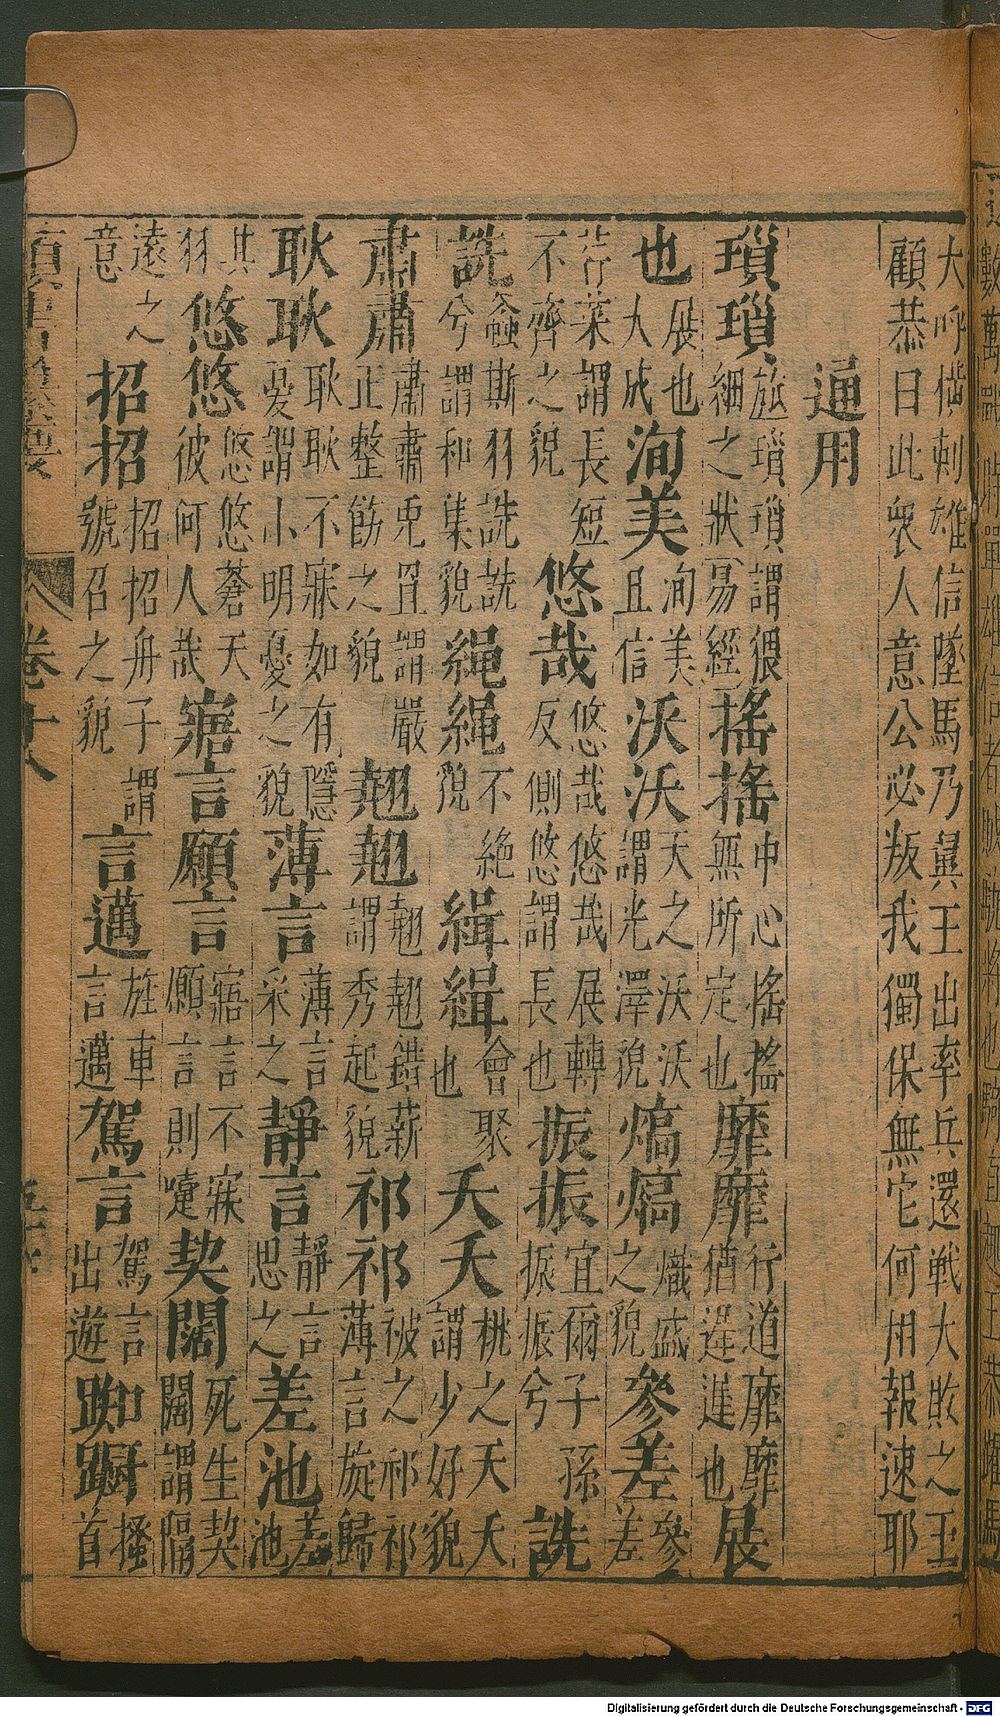 大呼橫刺雄信墜馬乃翼王出率兵還戰大敗之王
顧恭曰此衆人意公必叛我獨保無它何用報速耶
通用
瑣瑣旅瑣瑣謂猥細之狀(易經)搖搖中心搖搖無所定也靡靡行道靡靡猶遲遲也展
也展也大成洵美洵美且信沃沃天之沃沃謂光澤貌熇熇熾盛之貌參差參差
荇菜謂長短不齊之貌悠哉悠哉悠哉展轉反側悠謂長也振振宜爾子孫振振兮詵
詵螽斯羽詵詵兮謂和集貌繩繩不絕貌緝緝會聚也夭夭桃之夭夭謂少好貌
肅肅肅肅兎罝謂嚴正整飭之貌翹翹翹翹錯薪謂秀起貌祁祁被之祁祁薄言旋歸
耿耿耿耿不寐如有隱憂謂小明憂之貌薄言薄言采之靜言靜言思之差池差池
其羽悠悠悠悠蒼天彼何人哉寤言願言寤言不寐願言則嚏契闊死生契闊謂隔
遠之意招招招招舟子謂號召之貌言邁旋車言邁駕言駕言出遊踟躕搔首
類書纂要 卷十八
Digitalisierung gefördert durch die Deutsche Forschungsgemeinschaft - DFG